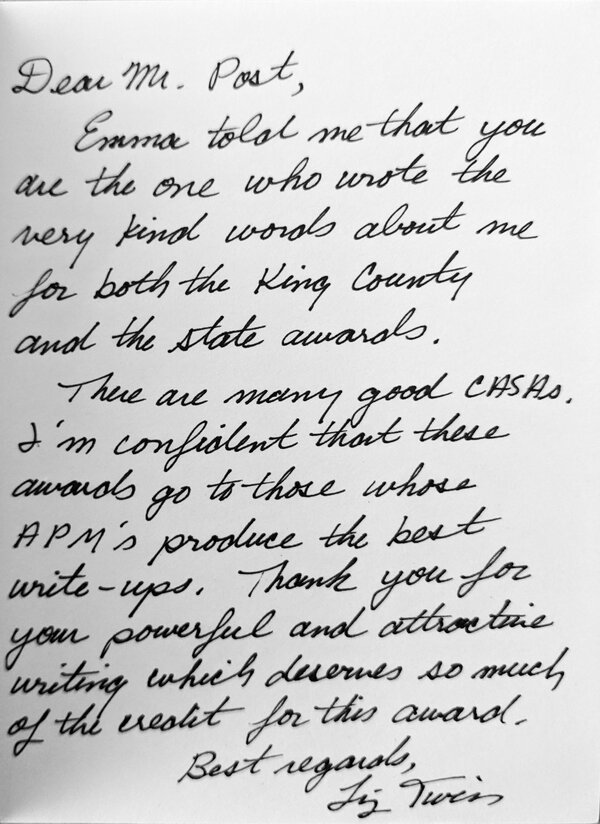 Dear Mr. Post,
Emma told me that you
are the one who wrote the
very kind words about me
for both the King County
and the state awards.
There are many good CASAs.
I'm confident that these
awards go to those whose
APM's produce the best
write-ups. Thank you for
your powerful and attractive
writing which deserves so much
of the credit for this award.
Best regards,
Liz